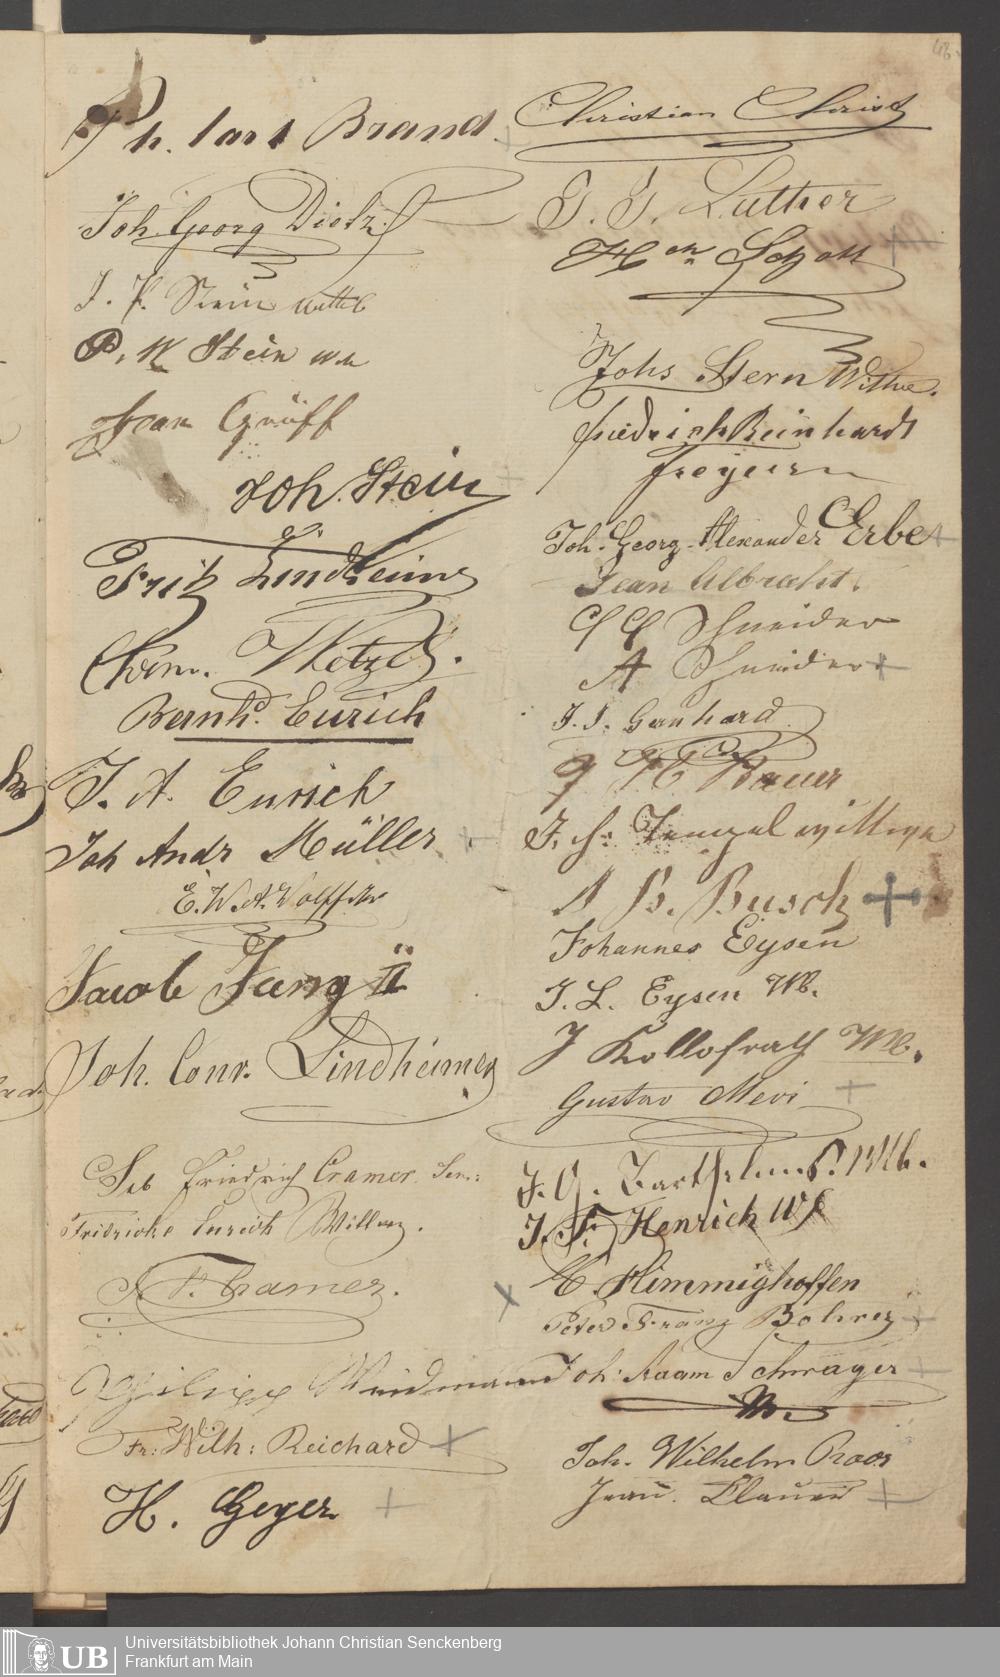 Ph. Carl Brand
Joh. Georg Dietz
J. P. Stein
P. K Stein
Jean Gräff
Joh. Stein
Fritz Lindheimer
Wetzel.
Bernhd. Eurich
J. A. Eurich
Joh Andr Müller
E. W. A. Wolff
Jacob Jung II
Joh. Conr. Lindheimer
Seb Friedrich Cramer Sen:
Fridricke Eurich
P. Cramer.
Philipp Weidmann
Fr: Wilh: Reichard
H. Geyer
Christian Christ
J. J. Luther
Schott
Johs Stern Wittwe.
Friedrich Reinhardt
Joh. Georg Alexander Erbe
Jean Albracht.
Schneider
A Schneider
J. J. Ganhard
Bauer
A B. Busch
Johannes Eysen
J. L. Eysen Wb.
J Kollofrath Wb.
Gustav Mevi
J. F. Henrich
C. Himmighoffen
Peter Franz Bohrer
Joh: Adam Schwager
Joh. Wilhelm Roos
Jean. Clauer
UB
Universitätsbibliothek Johann Christian Senckenberg
Frankfurt am Main